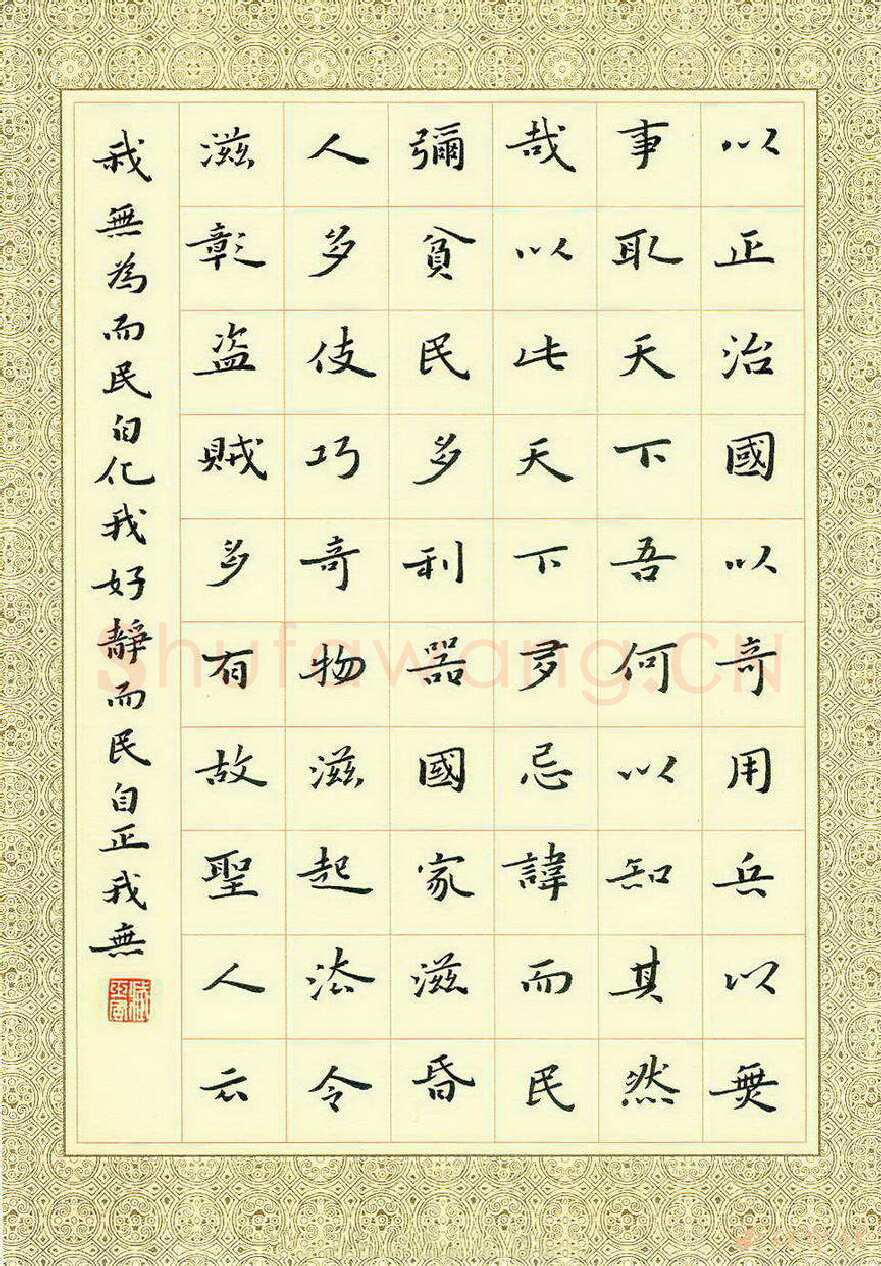 以正治國以奇用兵以無
事取天下吾何以知其然
哉以此天下多忌諱而民
彌貧民多利器國家滋昏
人多伎巧奇物滋起法令
滋彰盜賊多有故聖人云
我無為而民自化我好靜而民自正我無
Shufawang.CN